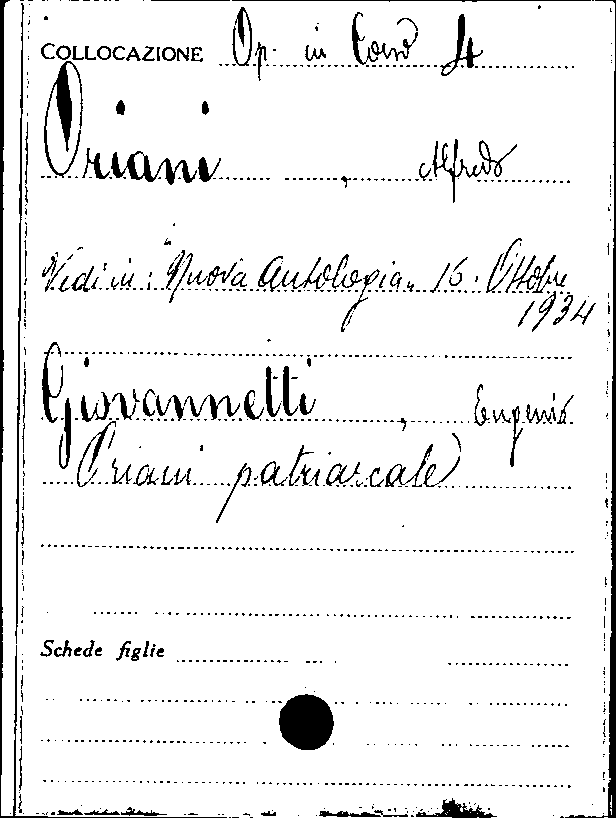 COLLOCAZIONE Op. in Cons 4
Oriani, Alfredo
Vedi in: "Nuova Antologia" 16. Ottobre
1934
Giovannetti, Eugenio
Oriani patriarcale
Schede figlie